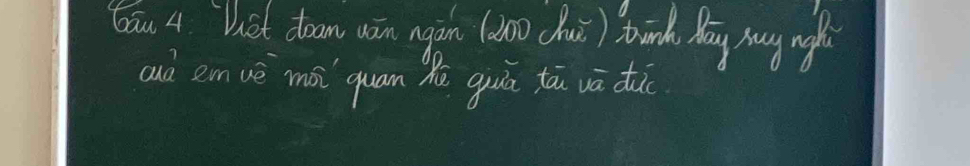 Câu 4. Viết đoạn văn ngắn (200 chữ) trình bày suy nghĩ
của em về mối quan hệ giữa tài và đức.